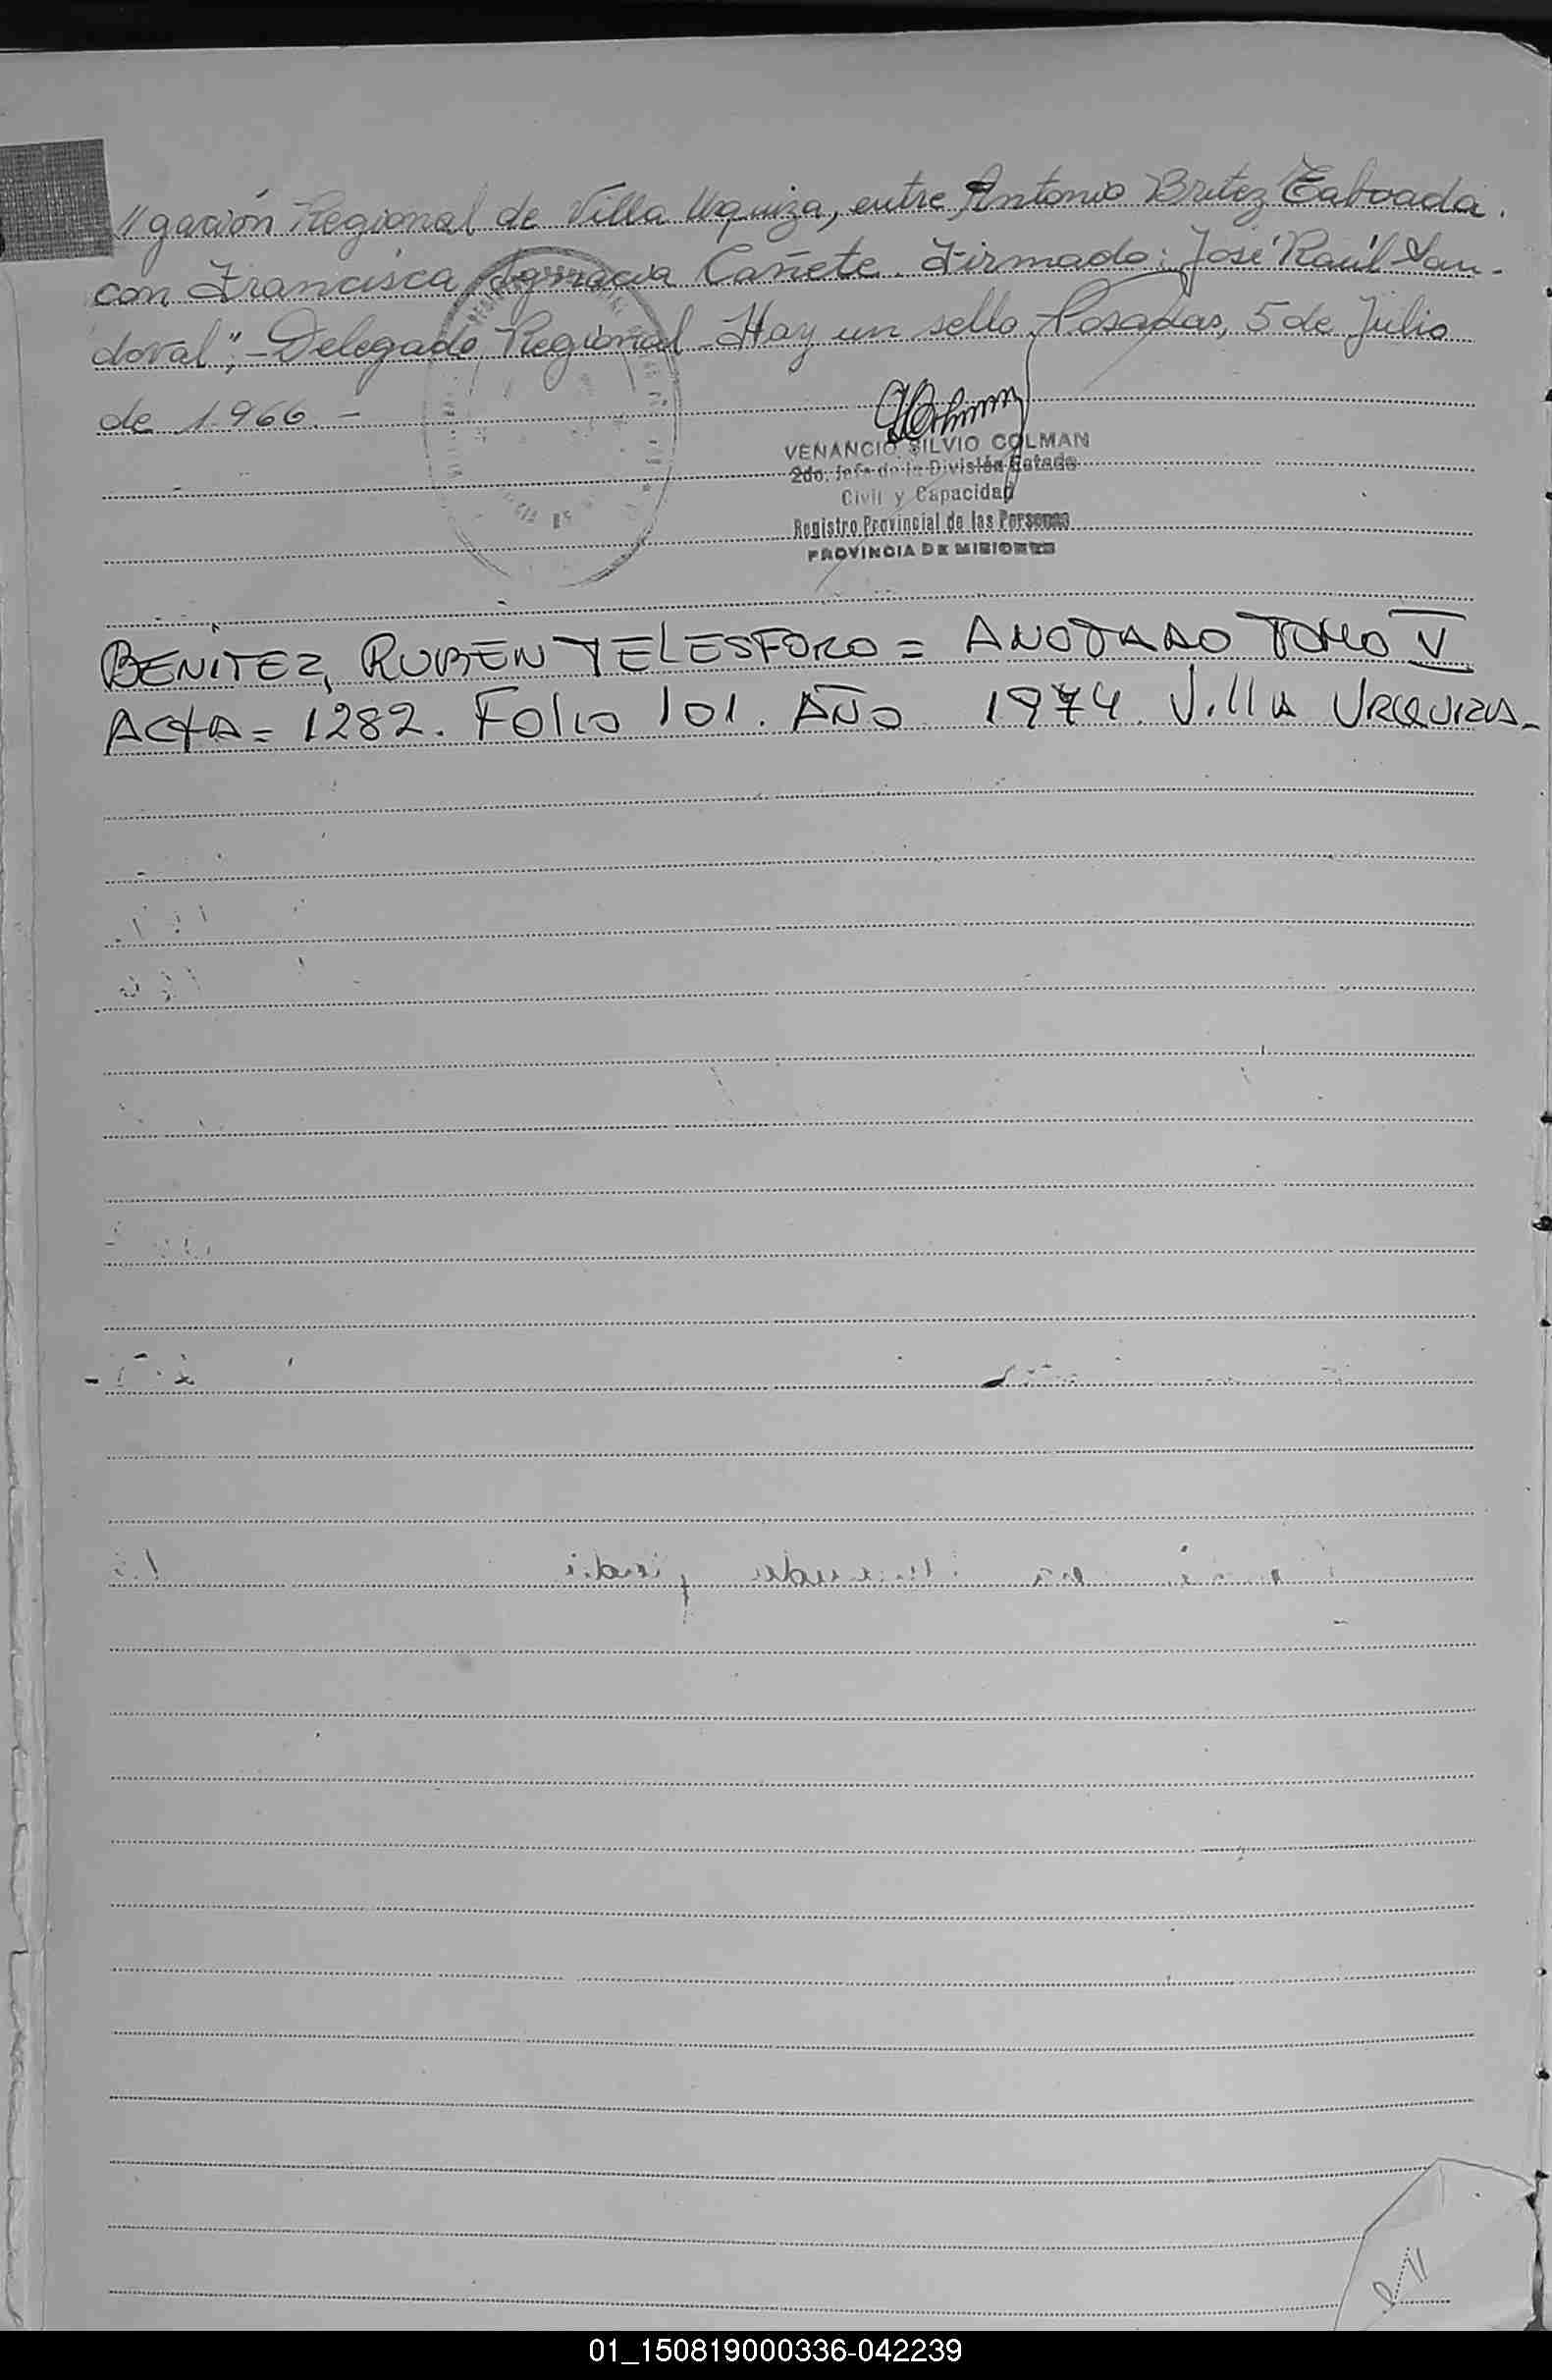 // gación Regional de Villa Urquiza, entre Antonio Britez Taboada.
con Francisca Ignacia Cañete. Firmado: José Raúl San-
doval", - Delegado Regional - Hay un sello. Posadas, 5 de Julio
de 1.966. -
VENANCIO SILVIO COLMAN
2do. Jefe de la División Estado
Civil y Capacidad
Registro Provincial de las Personas
PROVINCIA DE MISIONES
BENITEZ, RUBEN TELESFORO = ANOTADO TOMO V
ACTA = 1282. Folio 101. AÑO 1974. Villa URQUIZA -
01_150819000336-042239